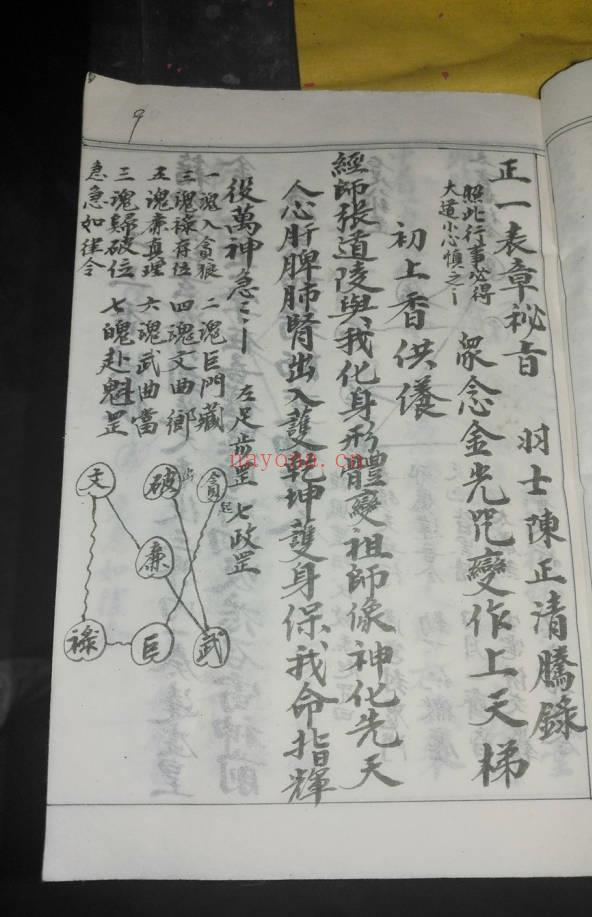 9
正一表章祕旨　羽士陳正清騰錄
照此行事必得
大道小心慎之〻
眾念金光咒變作上天梯
初上香供養
經師張道陵與我化身形體變祖師像神化先天
人心肝脾肺腎出入護乾坤護身保我命指輝
役萬神急〻〻
左足步罡　七政罡
一魂入貪狼　二魂巨門藏
三魂祿存位　四魂文曲鄉
五魂廉真理　六魂武曲當
三魂歸破位　七魄赴魁罡
急急如律令
文　破出　貪起
廉
祿　巨　武
nayona.cn